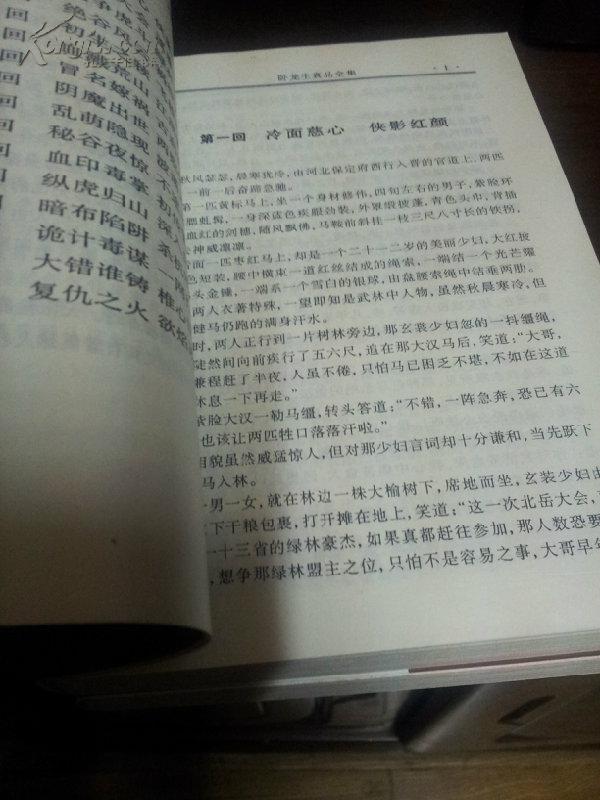 回
回
回
回
回
回
回
回
绝谷风
初
冒名嫁祸
阴魔出世
乱萌隐现
秘谷夜惊
血印毒掌
纵虎归山
暗布陷阱
诡计毒谋
大错谁铸
复仇之火
卧龙生真品全集
·1·
第一回 冷面慈心 侠影红颜
秋风瑟瑟，晨寒犹冷，由河北保定府西行入晋的官道上，两匹
一前一后奋蹄急驰。
第一匹黄标马上，坐一个身材修伟，四旬左右的男子，紫脸环
腮虬髯，一身深蓝色疾服劲装，外罩缎披蓬，青色头巾，背插
血红的剑穗，随风飘佛，马鞍前斜挂一枝三尺八寸长的铁拐，
神威凛凛。
面一匹枣红马上，却是一个二十一二岁的美丽少妇，大红披
色短装，腰中横束一道红丝结成的绳索，一端结一个光芒耀
头金锤，一端系一个雪白的银球，由盘腰索绳中结垂两肋。
两人衣著特殊，一望即知是武林中人物，虽然秋晨寒冷，但
健马仍跑的满身汗水。
时，两人正行到一片树林旁边，那玄装少妇忽的一抖缰绳，
陡然间向前疾行了五六尺，追在那大汉马后，笑道：“大哥，
兼程赶了半夜，人虽不倦，只怕马已困乏不堪，不如在这道
休息一下再走。”
紫脸大汉一勒马缰，转头答道：“不错，一阵急奔，恐已有六
也该让两匹牲口落落汗啦。”
相貌虽然威猛惊人，但对那少妇言词却十分谦和，当先跃下
马入林。
一男一女，就在林边一株大榆树下，席地而坐，玄装少妇由
下干粮包裹，打开摊在地上，笑道：“这一次北岳大会，
一十三省的绿林豪杰，如果真都赶往参加，那人数恐要
，想争那绿林盟主之位，只怕不是容易之事，大哥早年